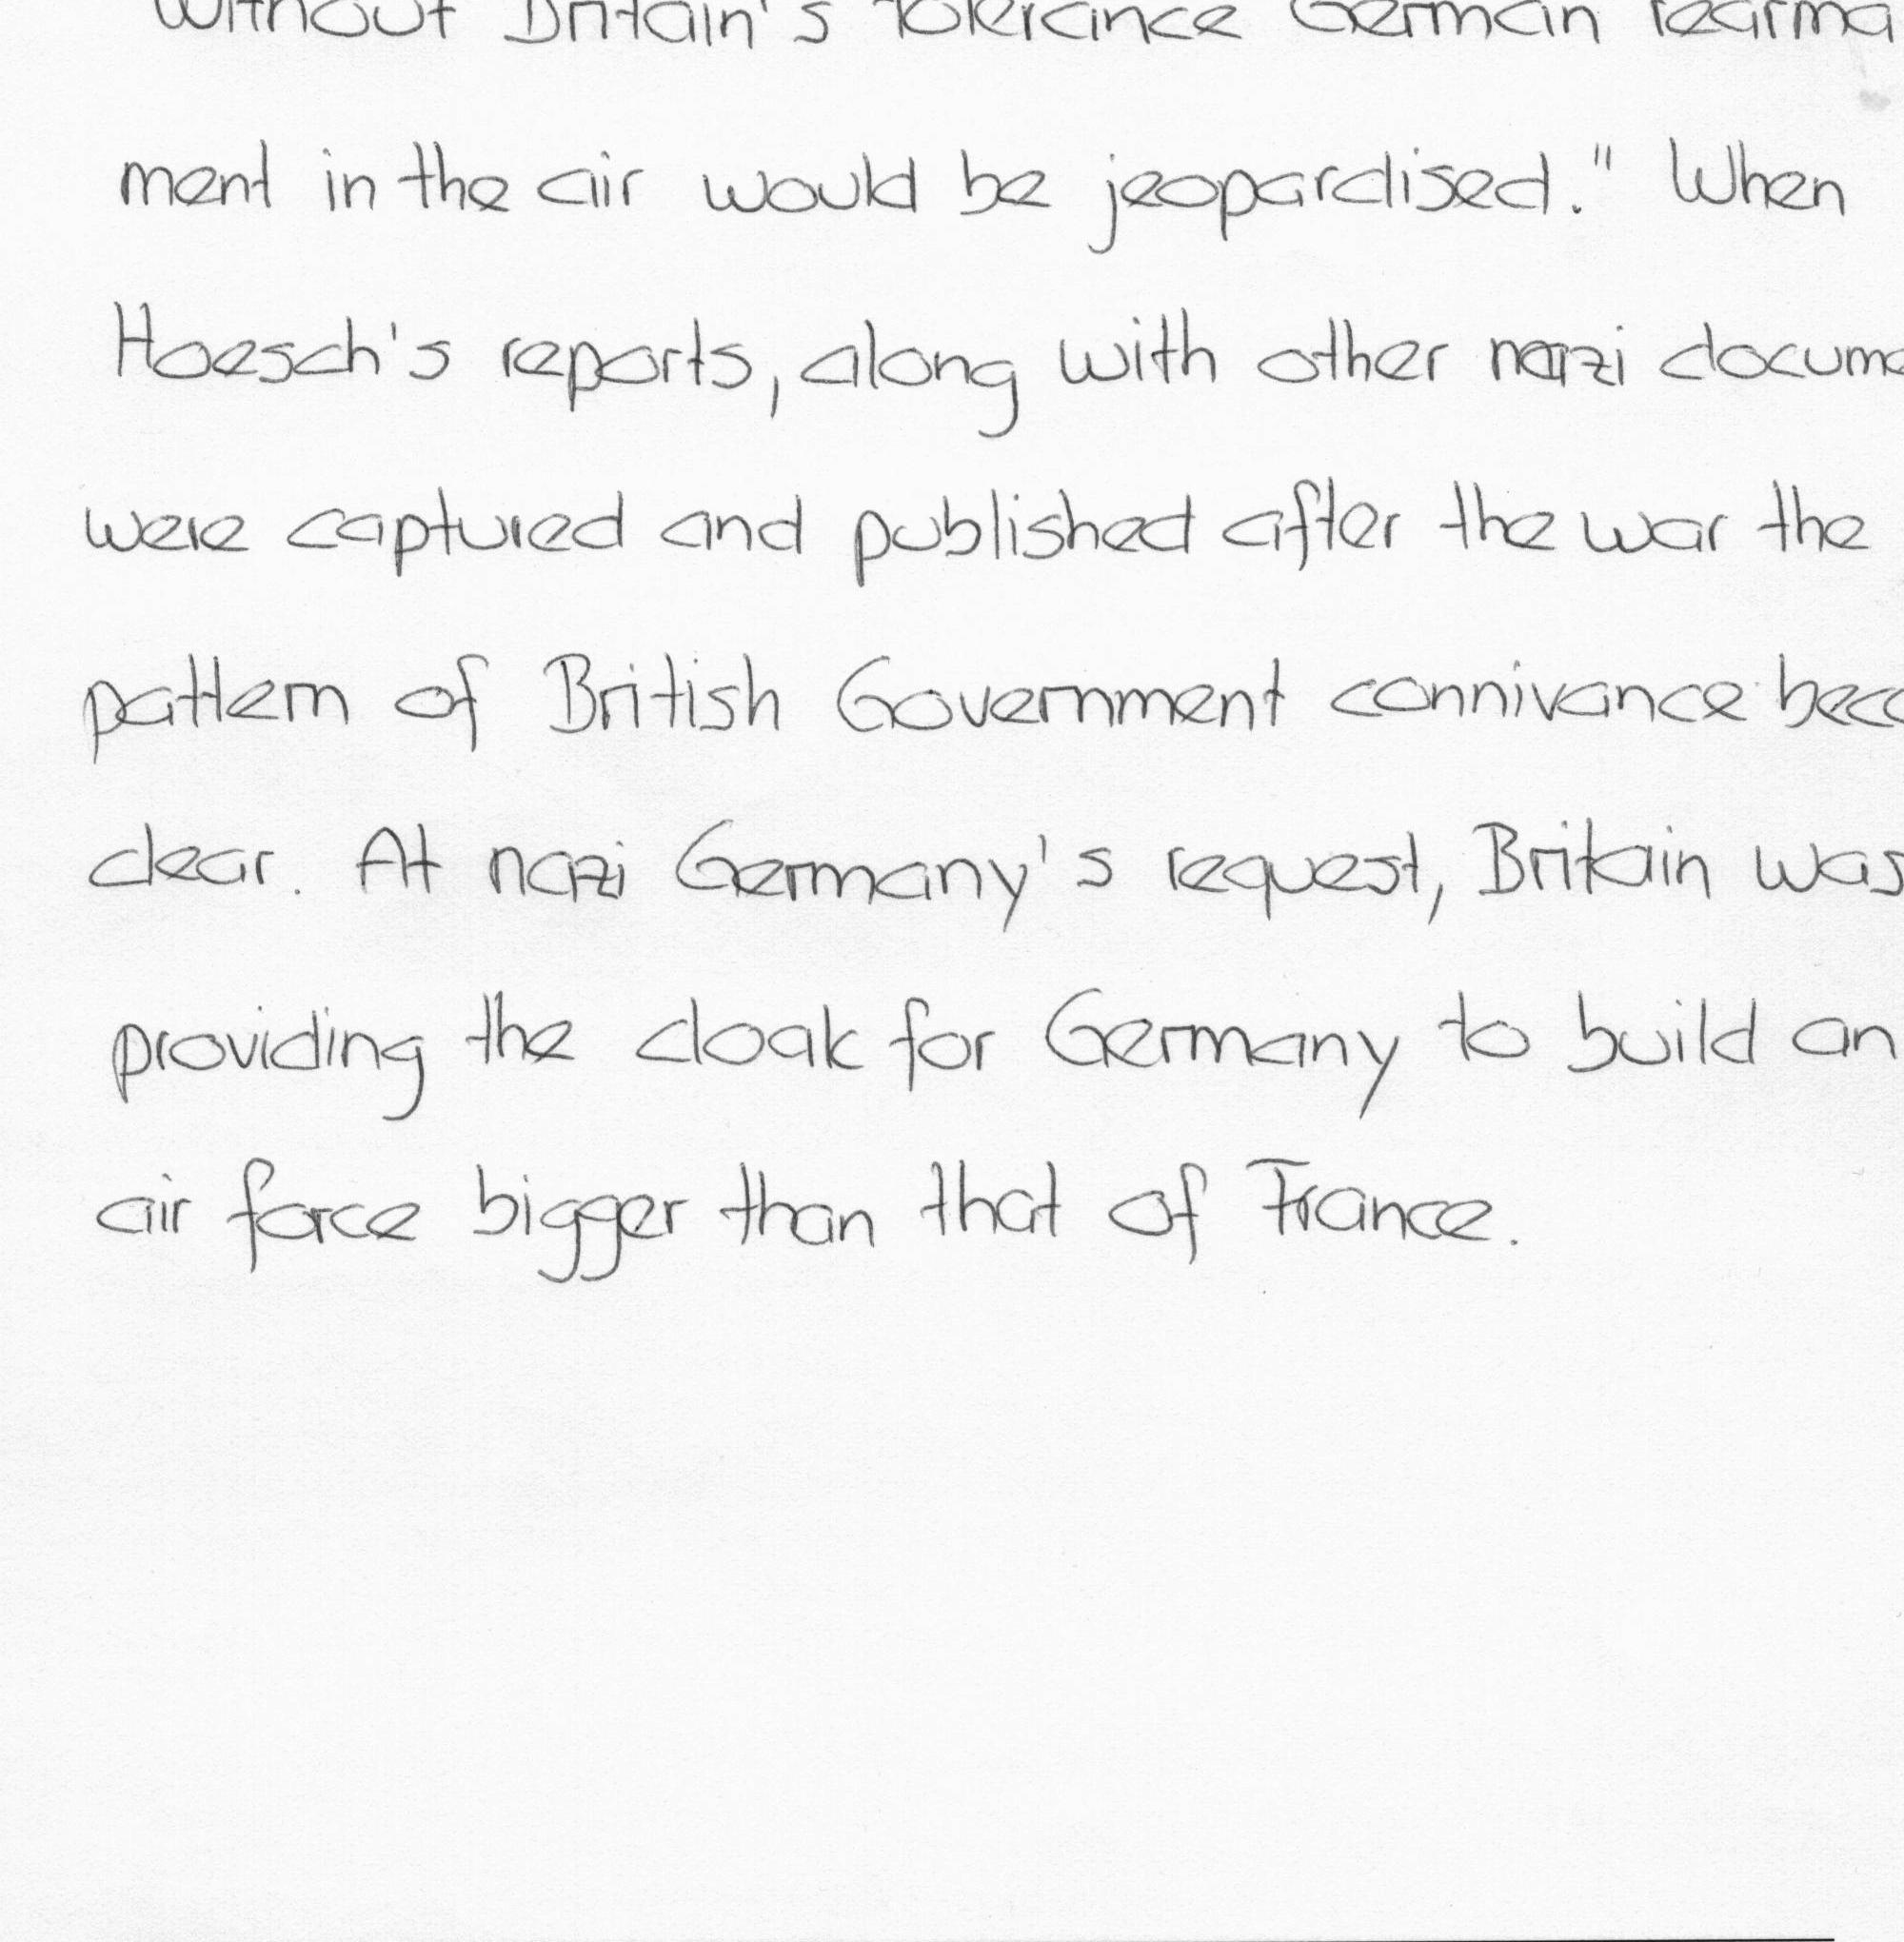 Without Britain's tolerance German rearma
ment in the air would be jeopardised." When
Hoesch's reports, along with other nazi docume
were captured and published after the war the
pattern of British Government connivance beco
clear. At nazi Germany's request, Britain was
providing the cloak for Germany to build an
air force bigger than that of France.